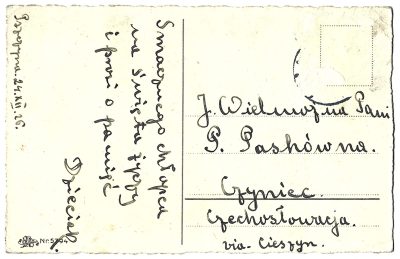 Pszczyna, 24.XII.26.
Smacznego chłopca
na Święta życzy
i prosi o pamięć
Dzieciak.
J. Wielmożna Pani
P. Pashówna.
Czyniec.
Czechosłowacja.
via. Cieszyn.